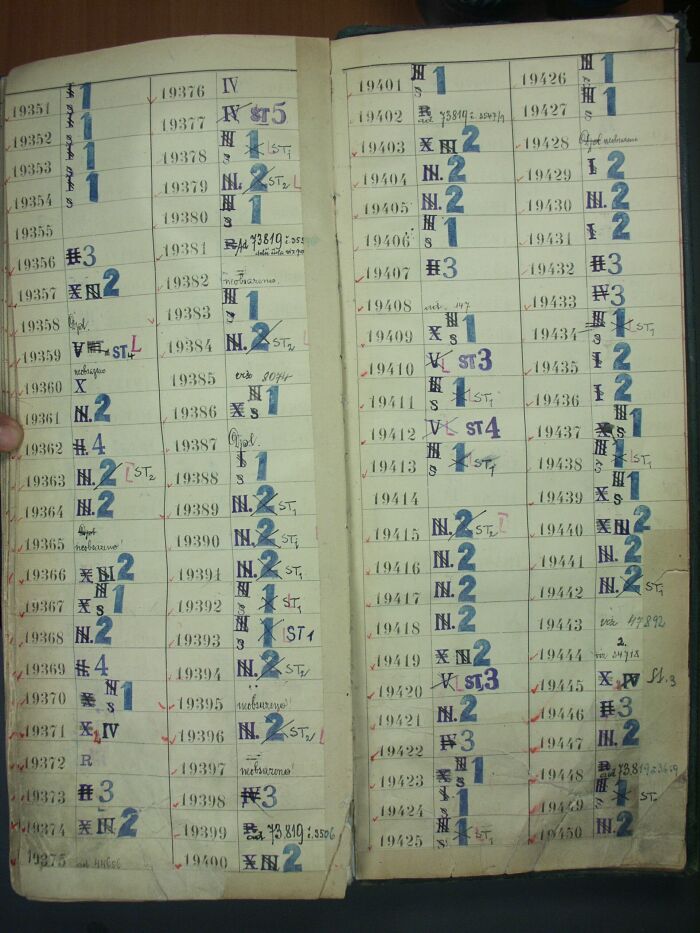 19351 1
S
19352 1
S
19353 1
S
19354 1
S
19355
19356 II 3
19357 X III 2
19358
19359 V ST4 L
19360 X
19361 III. 2
19362 II. 4
19363 III. 2 ST2
19364 III. 2
19365 neobsazeno!
19366 X III 2
19367 X III S 1
19368 III. 2
19369 II. 4
19370 X III S 1
19371 X IV
19372 R
19373 II 3
19374 X III 2
19375 ad 44656
19376 IV
19377 IV ST5
19378 III S 1 X L ST1
19379 III. 2 ST2 L
19380 III S 1
19381 R 73819
19382 neobsazeno.
19383 III S 1
19384 III. 2 ST2 L
19385 viz 8074
19386 X III S 1
19387
19388 I S 1
19389 III. 2 ST1
19390 III. 2 ST1
19391 III. 2 ST1
19392 III S 1 ST1
19393 III S 1 X ST1
19394 III. 2 ST2
19395 neobsazeno!
19396 III. 2 ST2 L
19397 neobsazeno!
19398 IV 3
19399 R ad 73.819 č. 3506
19400 X III 2
19401 III S 1
19402 R ad 73819 č. 3547/9
19403 X III 2
19404 III. 2
19405 III. 2
19406 III S 1
19407 II 3
19408 147
19409 X III S 1
19410 V. L ST3
19411 III S 1 X ST1
19412 V L ST4
19413 III S 1 X L ST1
19414
19415 III. 2 ST2
19416 III. 2
19417 III. 2
19418 III. 2
19419 X III 2
19420 V L ST.3
19421 III. 2
19422 IV 3
19423 X III S 1
19424 I S 1
19425 III S 1 X L ST1
19426 III S 1
19427 III S 1
19428 neobsazeno
19429 I 2
19430 III. 2
19431 I 2
19432 II 3
19433 IV 3
19434 III S 1 X L ST1
19435 I 2
19436 I 2
19437 X III S 1
19438 III S 1 X L ST1
19439 X III S 1
19440 X III 2
19441 III. 2
19442 III. 2 ST1
19443 viz 47892
19444 2.
viz 24718
19445 X IV St.3
19446 II 3
19447 III. 2
19448 R ad 73.819
19449 III S 1 X
19450 III. 2